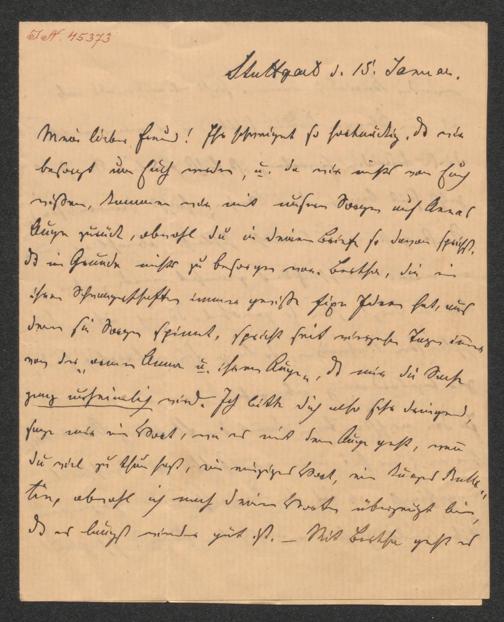 I.N. 45373
Stuttgart d. 15. Januar.
Mein lieber Freund! Ihr schweiget so hartnäckig, daß wir
besorgt um Euch werden, u. da wir nichts von Euch
wissen, kommen wir mit unsern Sorgen auf Annas
Auge zurück, obwohl du in deinem Briefe so davon sprichst,
daß im Grunde nichts zu besorgen war. Bertha, die in
ihren Schwangerschaften immer gewisse fixe Ideen hat, aus
denen sie Sorgen spinnt, spricht seit vierzehn Tagen immer
von der „armen Anna u. ihrem Auge", daß mir die Sache
ganz unheimlich wird. Ich bitte dich also sehr dringend,
sage mir ein Wort, wie es mit dem Auge geht, wenn
du viel zu thun hast, ein einziges Wort, ein kurzes Bulle-
tin, obwohl ich nach deinen Worten überzeugt bin,
daß es längst wieder gut ist. — Mit Bertha geht es